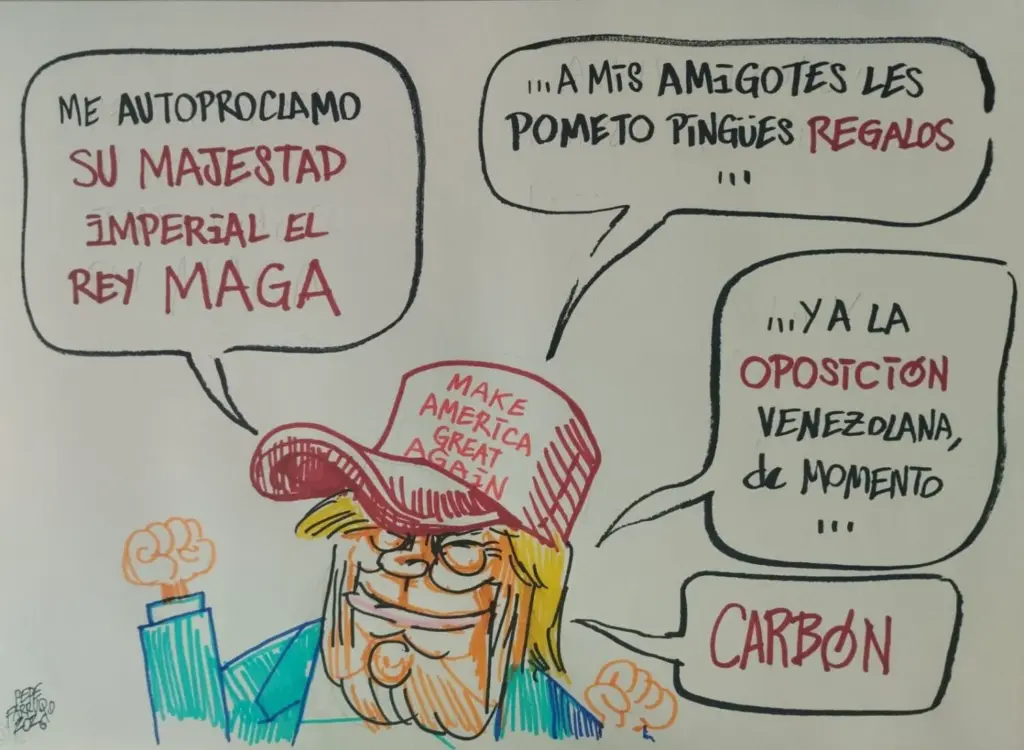 ME AUTOPROCLAMO
SU MAJESTAD
IMPERIAL EL
REY MAGA
...A MIS AMIGOTES LES
POMETO PINGÜES REGALOS
...
...Y A LA
OPOSICIÓN
VENEZOLANA,
de MOMENTO
...
CARBÓN
MAKE
AMERICA
GREAT
AGAIN
PEPE
FARRUQO
2026